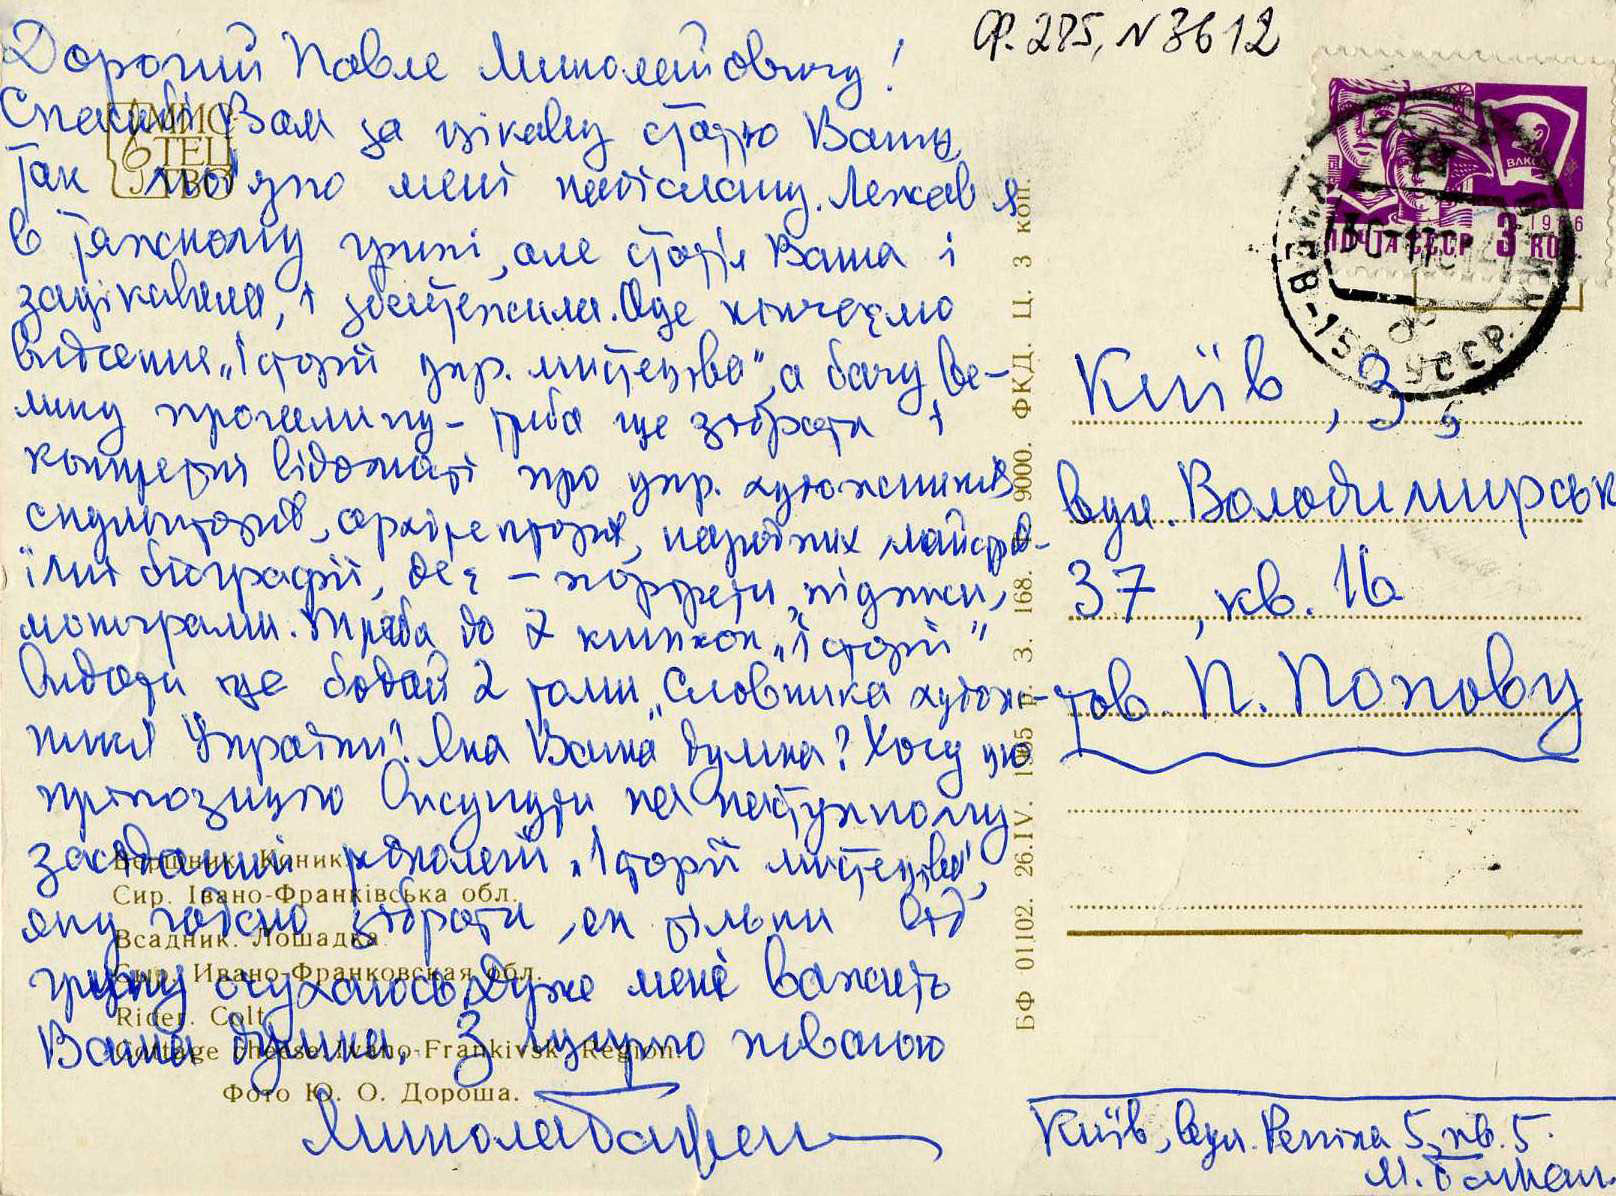 Ф. 285, N 3612
Дорогий Павле Миколайовичу!
Спасибі Вам за цікаву статтю Вашу,
так люб'язно мені надіслану. Лежав я
в тяжкому грипі, але стаття Ваша і
зацікавила, і збентежила. Оце кінчаємо
видання „Історії укр. мистецтва", а бачу ве-
лику прогалину - треба ще зібрати і
конкретні відомості про укр. художників
скульпторів, архітекторів, народних майстрів
їхні біографії, де є - портрети, підписи,
монограми. Треба до 7 книжок „Історії"
видати ще бодай 2 томи „Словника худож-
ників України". Яка Ваша думка? Хочу цю
пропозицію висунути на наступному
засіданні редколегії „Історії мистецтва",
яку гадаю зібрати, як тільки від
грипу очухаюсь. Дуже мені важить
Ваша думка. З щирою повагою
Микола Бажан
МИС
ТЕЦ
ТВО
Вершник. Коник.
Сир. Івано-Франківська обл.
Всадник. Лошадка.
Сыр. Ивано-Франковская обл.
Rider. Colt.
Cottage cheese. Ivano-Frankivsk Region.
Фото Ю. О. Дороша.
БФ 01102. 26.IV. 1965 р. З. 168. 9000. ФКД. Ц. 3 коп.
ВЛКСМ
1966
ПОЧТА СССР 3 КОП.
УССР
Київ, 3
вул. Володимирськ
37, кв. 16
тов. П. Попову
Київ, вул. Рєпіна 5, кв. 5.
М. Бажан